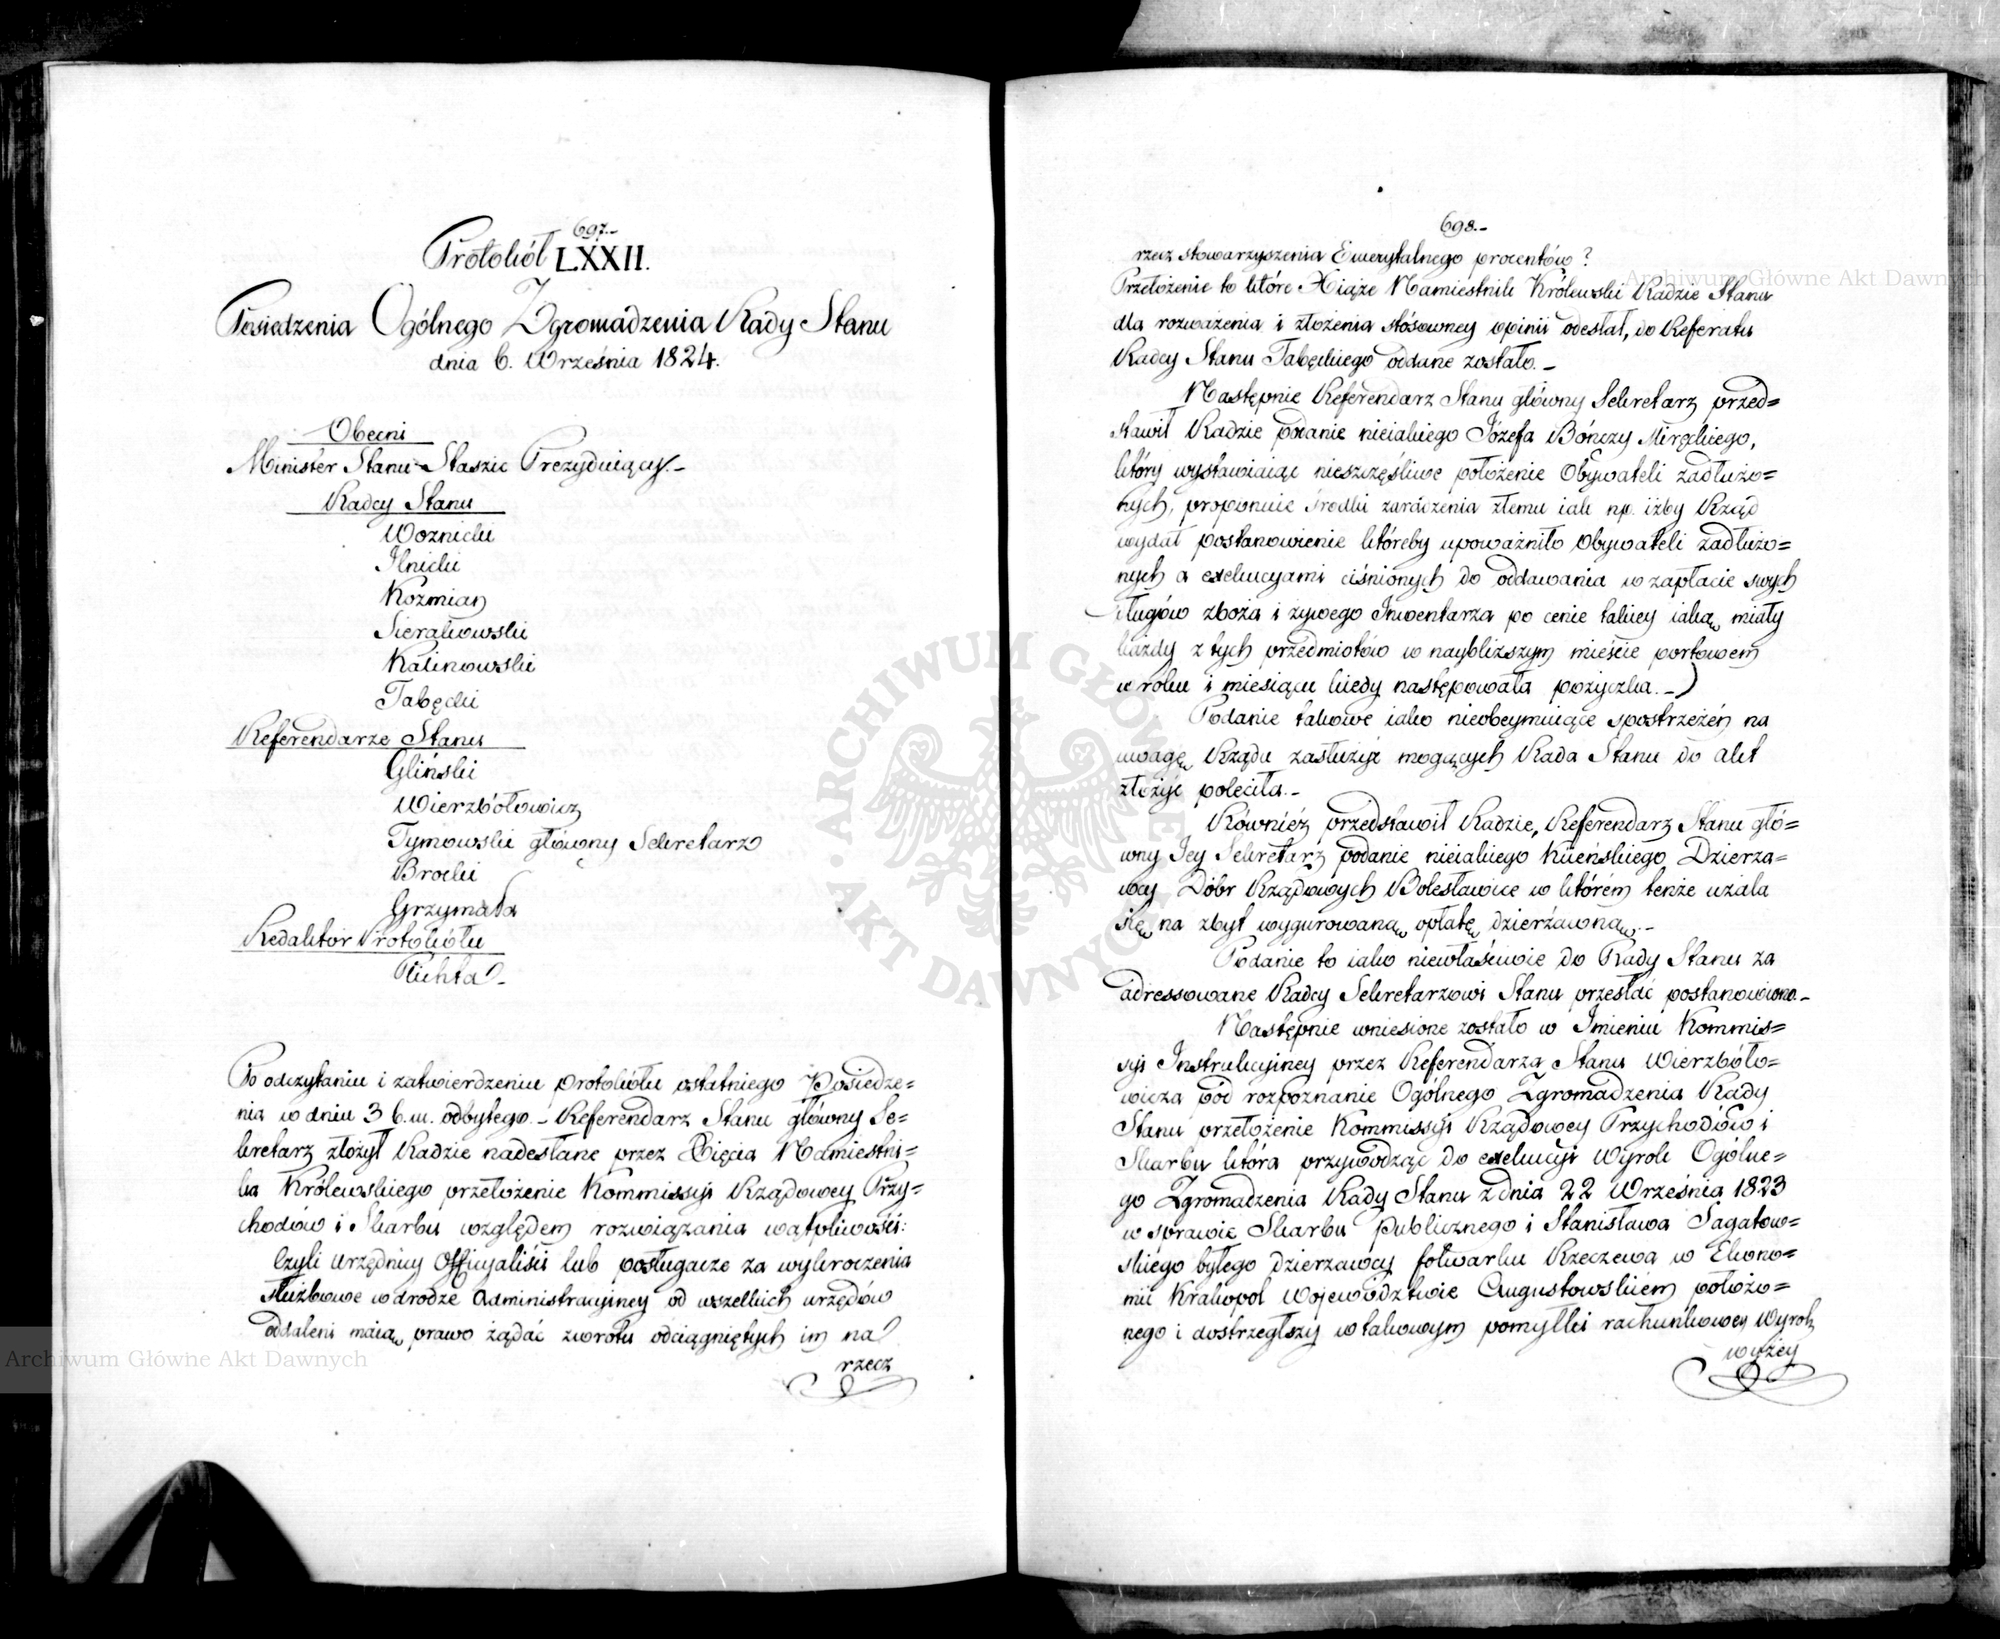 697.-
Protokół LXXII.
Posiedzenia Ogólnego Zgromadzenia Rady Stanu
dnia 6. Września 1824.
Obecni
Minister Stanu Staszic Prezyduiący.-
Radcy Stanu
Woznicki
Ilnicki
Kozmian
Sierakowski
Kalinowski
Tabęcki
Referendarze Stanu
Gliński
Wierzbołowicz
Tymowski główny Sekretarz
Brocki
Grzymała
Redaktor Protokółu
Plichta.-
Po odczytaniu i zatwierdzeniu protokółu ostatniego Posiedze=
nia w dniu 3 b. m. odbytego.- Referendarz Stanu główny Se=
kretarz złożył Radzie nadesłane przez Xięcia Namiestni=
ka Królewskiego przełożenie Kommissyi Rządowey Przy=
chodów i Skarbu względem rozwiązania wątpliwości:
Czyli Urzędnicy Officyaliści lub posługacze za wykroczenia
służbowe w drodze Administracyiney od wszelkich urzędów
oddaleni maią prawo żądać zwrotu odciągniętych im na
rzecz
698.-
rzecz stowarzyszenia Emerytalnego procentów?
Przełożenie to które Xiąże Namiestnik Królewski Radzie Stanu
dla rozważenia i złożenia stósowney opinii odesłał, do Referatu
Radcy Stanu Tabęckiego oddane zostało.-
Następnie Referendarz Stanu główny Sekretarz przed=
stawił Radzie podanie nieiakiego Józefa Bończy Miręckiego,
który wystawiaiąc nieszczęśliwe położenie Obywateli zadłużo=
nych, proponuie środki zaradzenia złemu iak np. iżby Rząd
wydał postanowienie któreby upoważniło Obywateli zadłużo=
nych a exekucyami ciśnionych do oddawania w zapłacie swych
długów zboża i żywego Inwentarza po cenie takiey iaką miały
każdy z tych przedmiotów w naybliższym mieście portowem
w roku i miesiącu kiedy następowała pożyczka.-)
Podanie takowe iako nieobeymuiące spostrzeżeń na
uwagę Rządu zasłużyć mogących Rada Stanu do akt
złożyć poleciła.-
Również przedstawił Radzie, Referendarz Stanu głó=
wny Jey Sekretarz podanie nieiakiego Kiieńskiego Dzierża=
wcy Dóbr Rządowych Bolesławice w którém tenże użala
się na zbyt wygurowaną opłatę dzierżawną.-
Podanie to iako niewłaściwie do Rady Stanu za
adressowane Radcy Sekretarzowi Stanu przesłać postanowiono.-
Następnie wniesione zostało w Imieniu Kommis=
syi Instrukcyiney przez Referendarza Stanu Wierzbóło=
wicza pod rozpoznanie Ogólnego Zgromadzenia Rady
Stanu przełożenie Kommissyi Rządowey Przychodów i
Skarbu która przywodząc do exekucyi Wyrok Ogólne=
go Zgromadzenia Rady Stanu z dnia 22 Września 1823
w sprawie Skarbu Publicznego i Stanisława Sagatow=
skiego byłego dzierżawcy folwarku Rzeczewa w Ekono=
mii Krakopol Województwie Augustowskiém położo=
nego i dostrzegłszy w takowym pomyłki rachunkowey Wyrok
wyżey